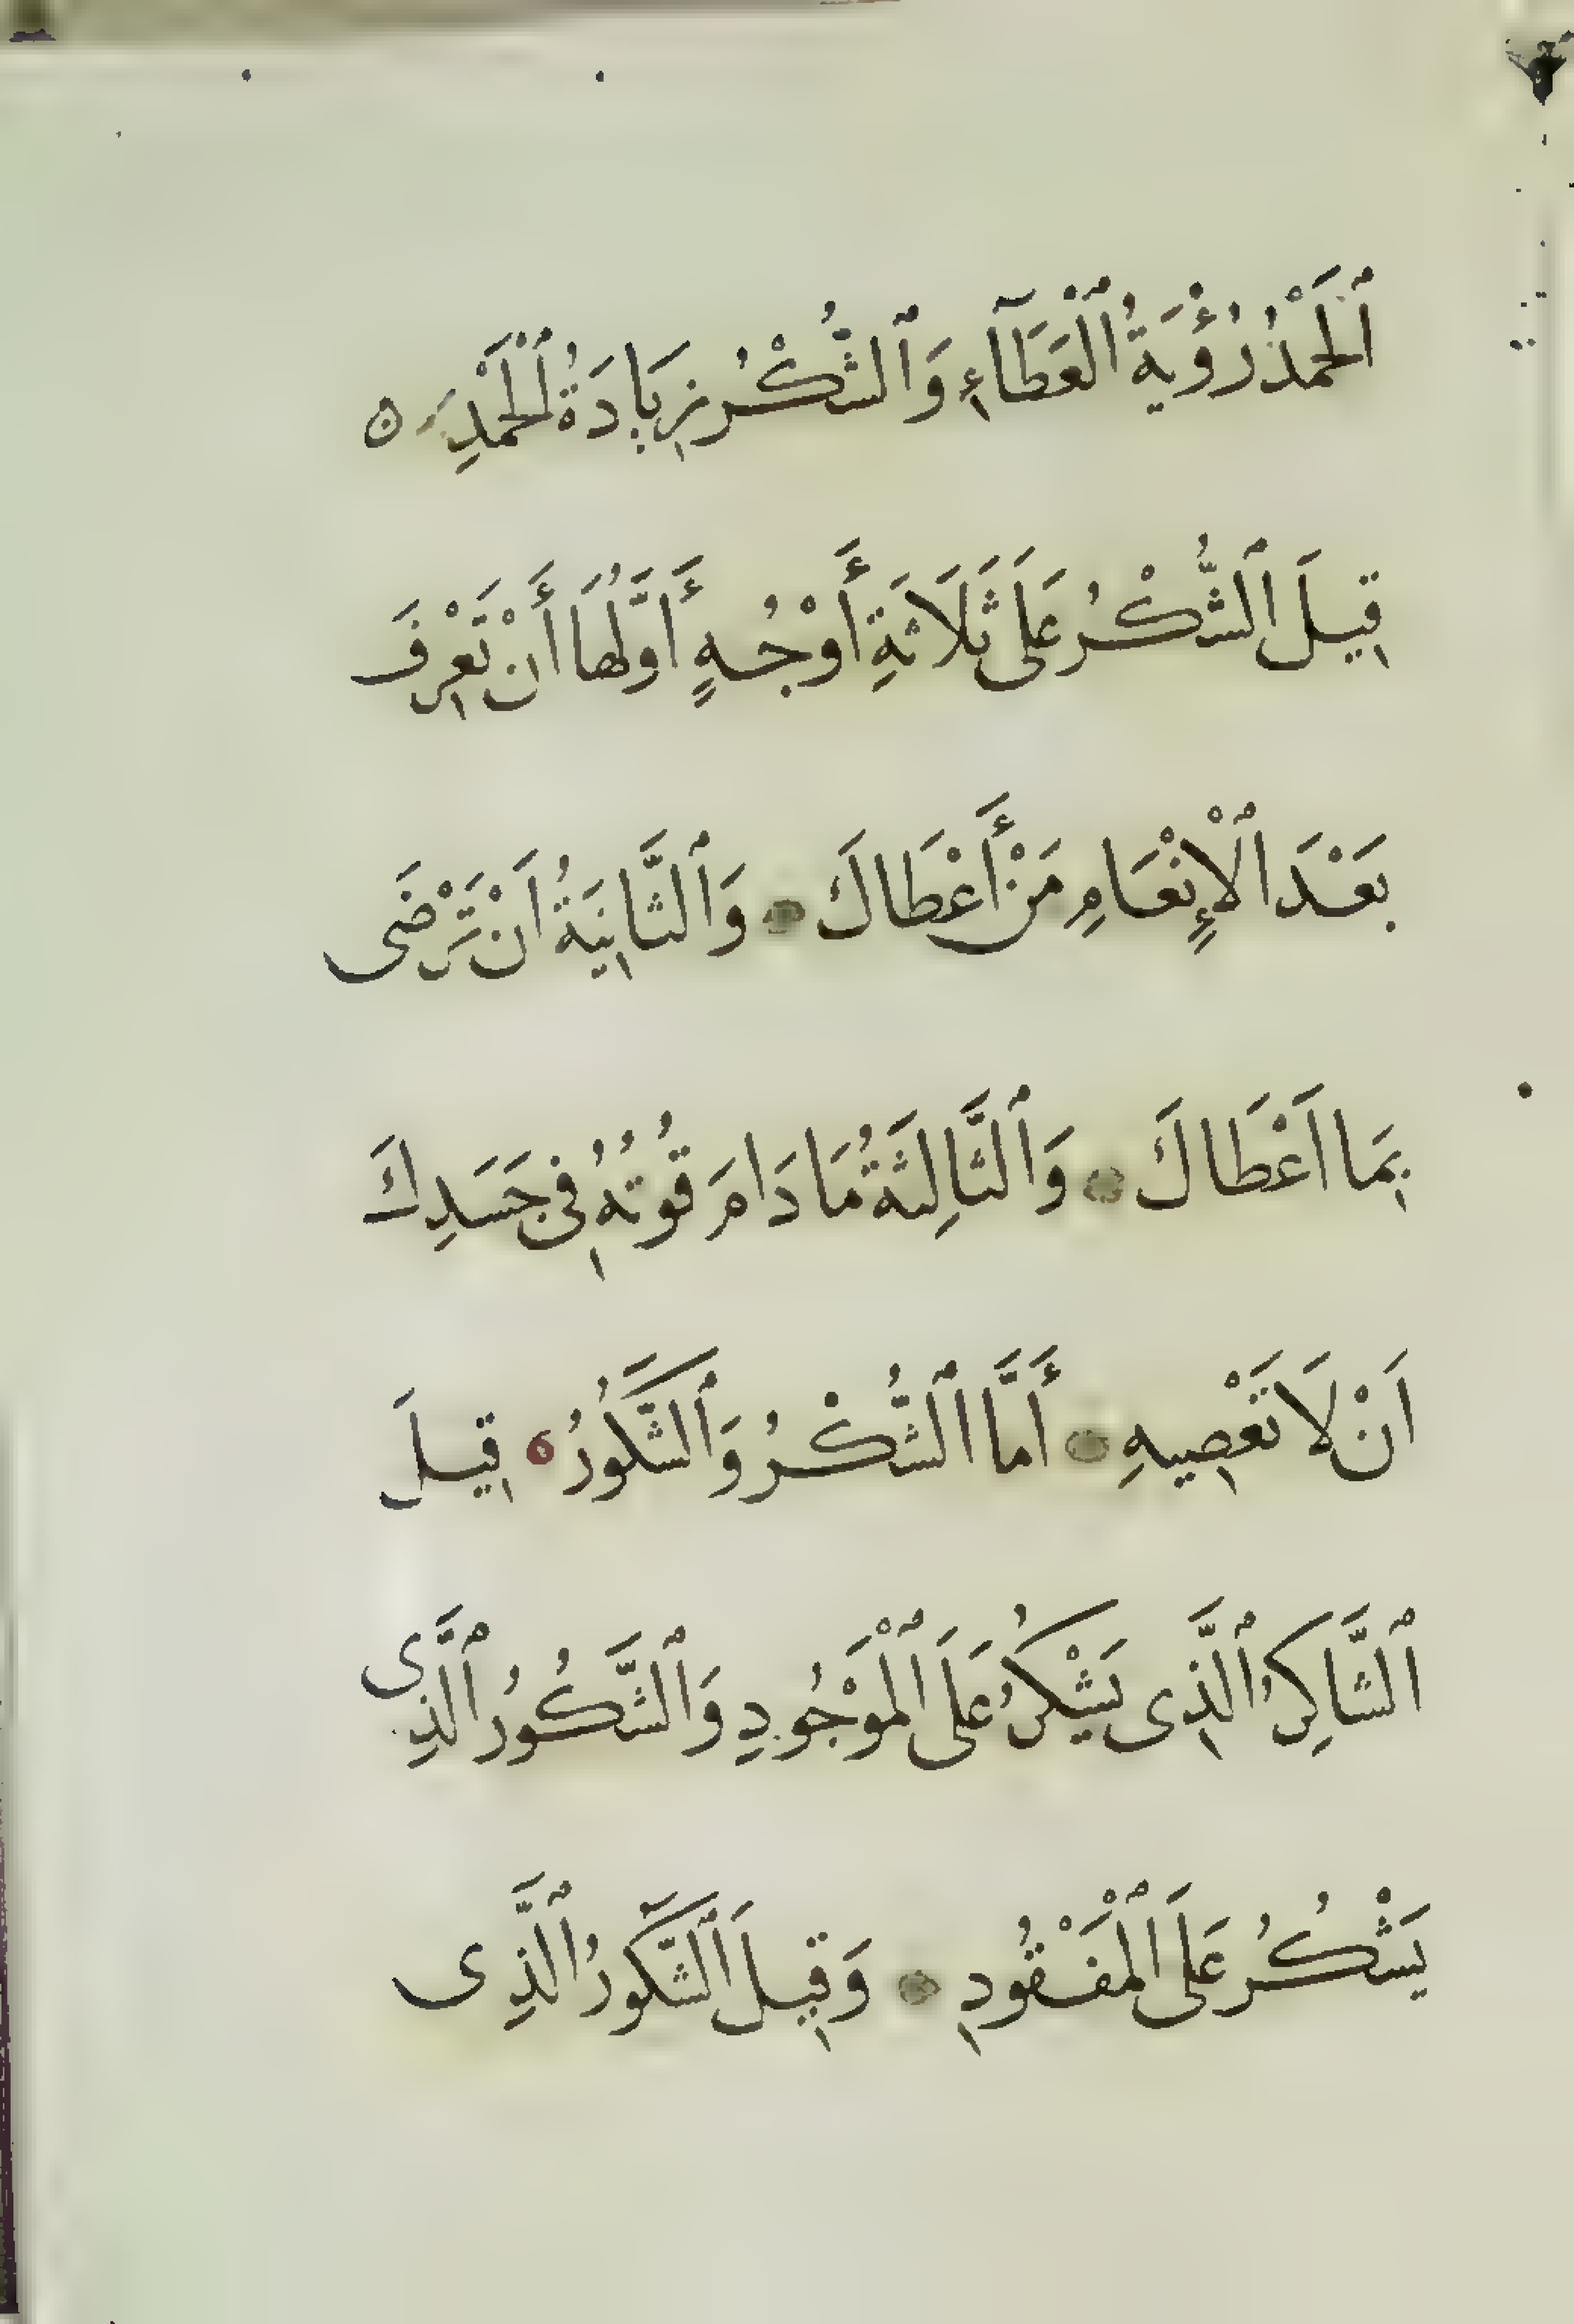 اَلْحَمْدُ رُؤْيَةُ الْعَطَآءِ وَالشُّكْرُ زِيَادَةُ الْحَمْدِ ۝
قِيلَ الشُّكْرُ عَلَى ثَلَاثَةِ أَوْجُهٍ أَوَّلُهَا أَنْ تَعْرِفَ
بَعْدَ الْإِنْعَامِ مَنْ أَعْطَاكَ ۝ وَالثَّانِيَةُ اَنْ تَرْضَى
بِمَا اَعْطَاكَ ۝ وَالثَّالِثَةُ مَا دَامَ قُوتُهُ فِى جَسَدِكَ
اَنْ لَا تَعْصِيهِ ۝ أَمَّا الشُّكْرُ وَالشَّكُورُ ۝ قِيلَ
الشَّاكِرُ الَّذِى يَشْكُرُ عَلَى الْمَوْجُودِ وَالشَّكُورُ الَّذِى
يَشْكُرُ عَلَى الْمَفْقُودِ ۝ وَقِيلَ الشَّكُورُ الَّذِى